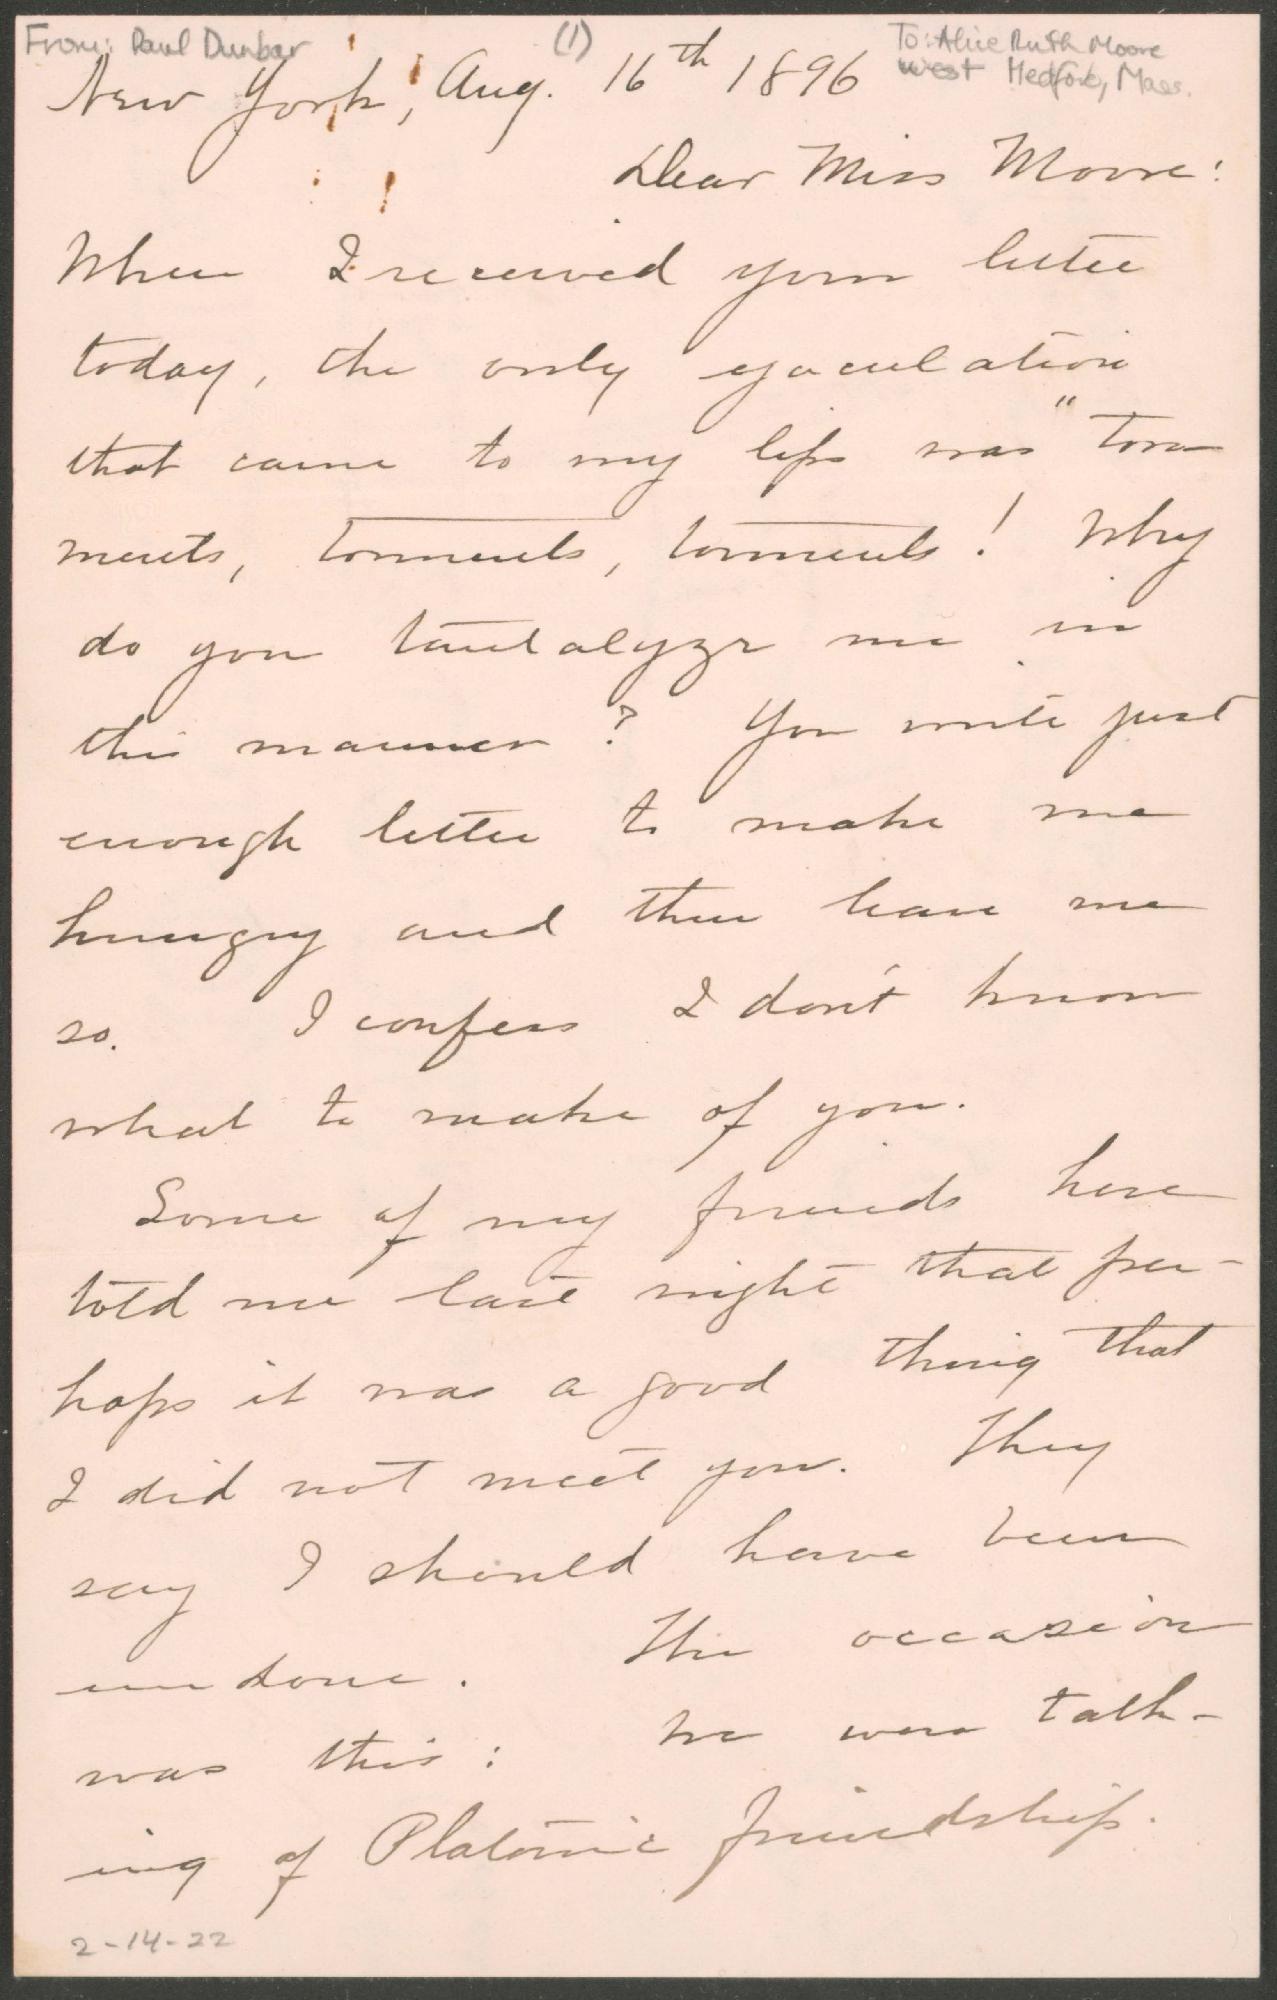 From: Paul Dunbar
(1)
To: Alice Ruth Moore
West Medford, Mass.
New York, Aug. 16th 1896
Dear Miss Moore:
When I received your letter
today, the only ejaculation
that came to my lips was "tor-
ments, torments, torments! Why
do you tantalyze me in
this manner? You write just
enough letter to make me
hungry and then leave me
so. I confess I don't know
what to make of you.
Some of my friends here
told me last night that per-
haps it was a good thing that
I did not meet you. They
say I should have been
undone. The occasion
was this: We were talk-
ing of Platonic friendship.
2-14-22